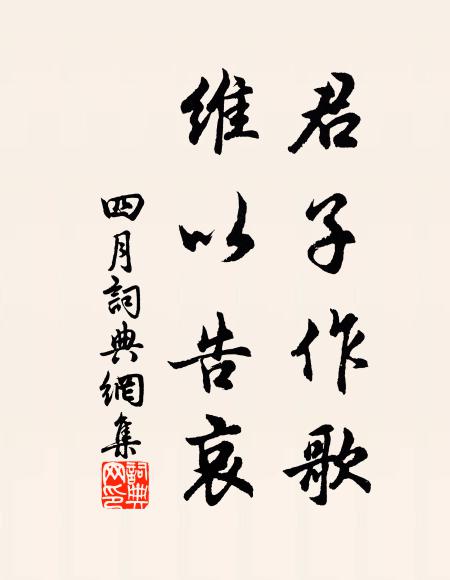 君子作歌
維以告哀
四月詞典網集
詞典網印